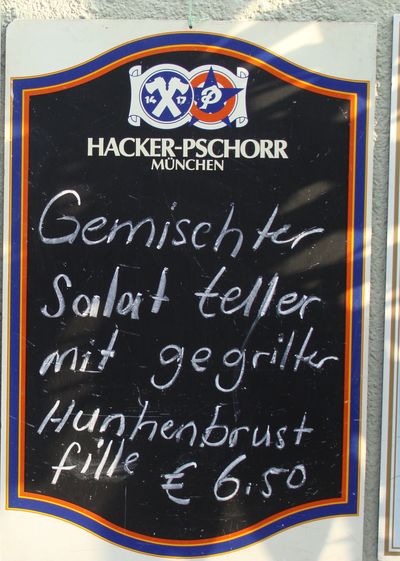 14 17 P
HACKER-PSCHORR
MÜNCHEN
Gemischter
Salat teller
mit gegrilter
Hunhenbrust
fille € 6.50